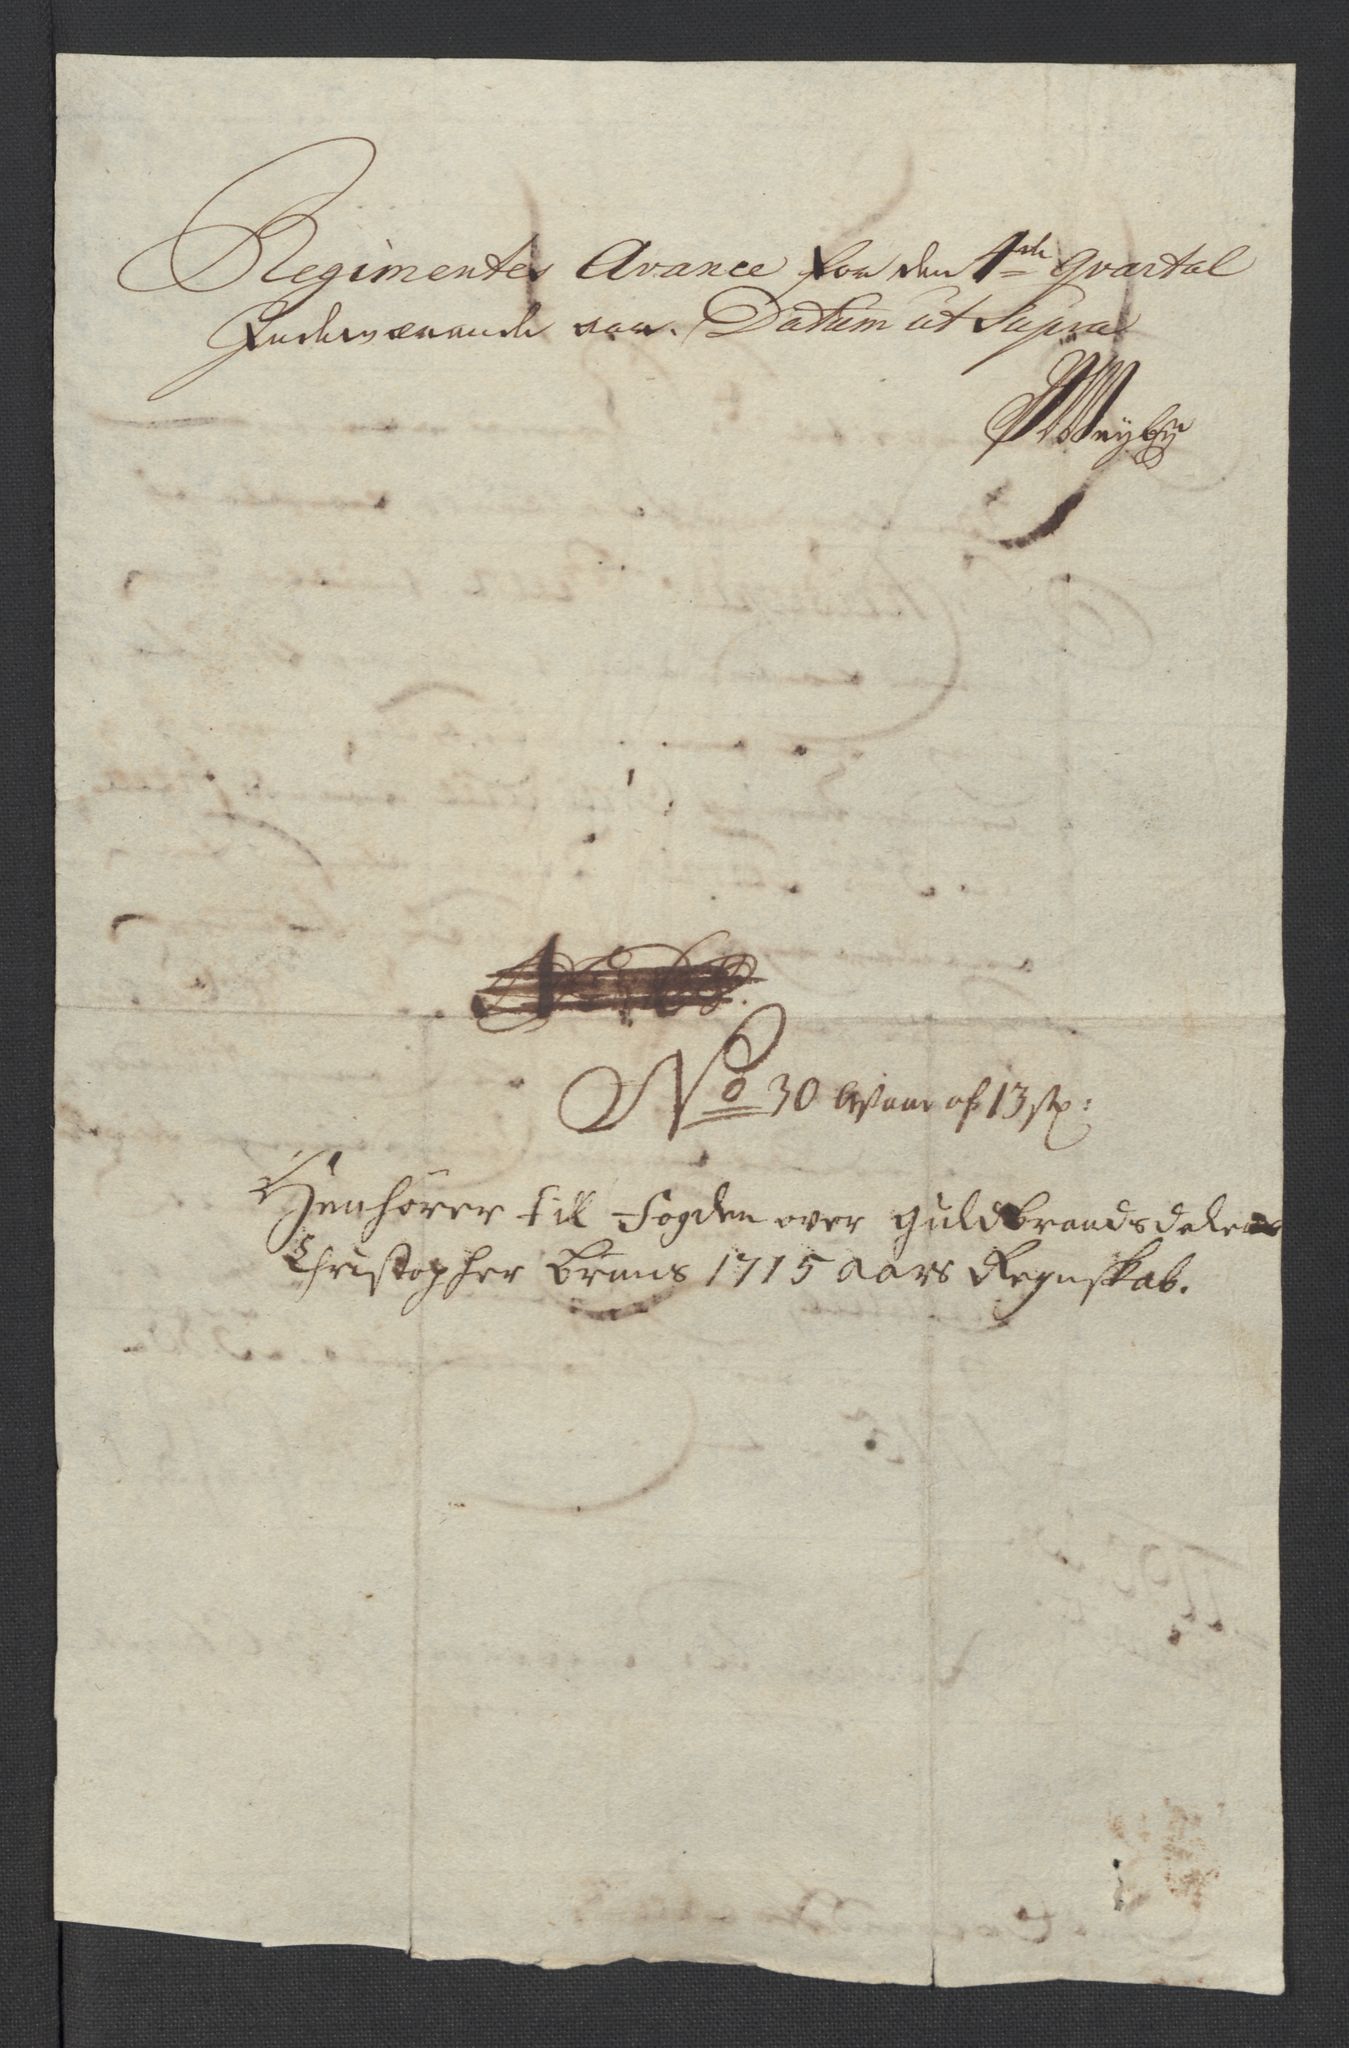 Regimentes Avance for den 1ste qvartal
Indeværende aar. Datum ut Supra
No 30 hvaar af 13 st:
Henhörer till Fogden over guldbrandsdalens
Christopher Bruns 1715 aars Regnskab.